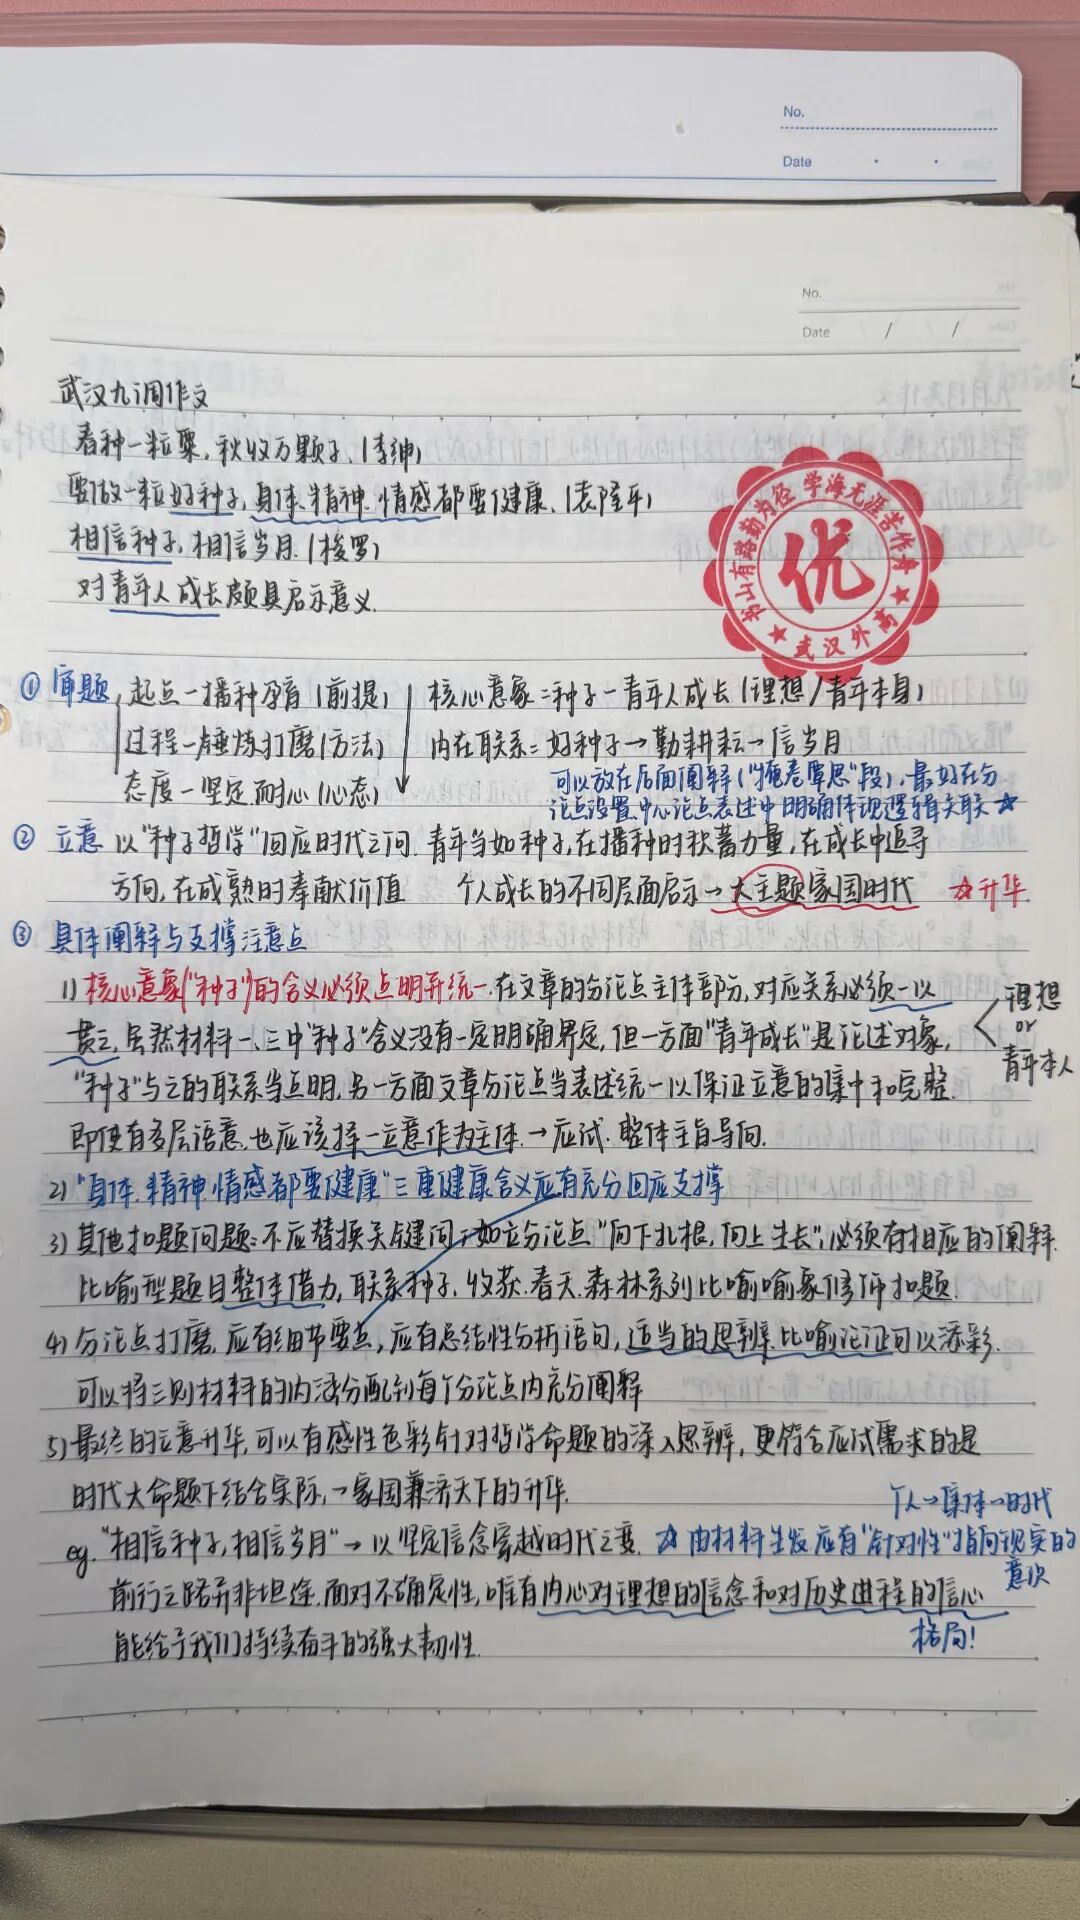 No.
Date
No.
Date / /
武汉九调作文
春种一粒粟，秋收万颗子。（李绅）
要做一粒好种子，身体、精神、情感都要健康。（袁隆平）
相信种子，相信岁月。（梭罗）
对青年人成长颇具启示意义。
书山有路勤为径 学海无涯苦作舟
优
武汉外高
① 审题 起点—播种孕育（前提） 核心意象=种子—青年人成长（理想/青年本身）
过程—锤炼打磨（方法） 内在联系=好种子→勤耕耘→信岁月
态度—坚定、耐心（心态） 可以放在后面阐释（"掩卷覃思"段），最好在分
论点设置、中心论点表述中明确体现逻辑关联☆
② 立意 以"种子哲学"回应时代之问. 青年当如种子，在播种时积蓄力量，在成长中追寻
方向，在成熟时奉献价值 个人成长的不同层面启示→大主题家国时代 ☆升华
③ 具体阐释与支撑注意点
1) 核心意象("种子")的含义必须点明并统一.在文章的分论点主体部分，对应关系必须一以
贯之.虽然材料一、三中"种子"含义没有一定明确界定，但一方面"青年成长"是论述对象，
"种子"与之的联系当点明，另一方面文章分论点当表述统一以保证立意的集中和完整.
即使有多层语意，也应该择一立意作为主体.→应试.整体主旨导向.
理想
or
青年本人
2) "身体、精神、情感都要健康"三重健康含义应有充分回应支撑
3) 其他扣题问题：不应替换关键词，如立分论点"向下扎根，向上生长"，必须有相应的阐释.
比喻型题目整体借力，联系种子、收获、春天、森林系列比喻喻象修饰扣题.
4) 分论点打磨，应有细节要点，应有总结性分析语句，适当的思辨、比喻论证可以添彩.
可以将三则材料的内涵分配到每个分论点内充分阐释
5) 最终的立意升华，可以有感性色彩针对哲学命题的深入思辨，更符合应试需求的是
时代大命题下结合实际，→家国兼济天下的升华.
个人→集体→时代
eg. "相信种子，相信岁月"→以坚定信念穿越时代之变. ☆由材料生发应有"针对性"指向现实的
意识
前行之路并非坦途，面对不确定性，唯有内心对理想的信念和对历史进程的信心
能给予我们持续奋斗的强大韧性.
格局！